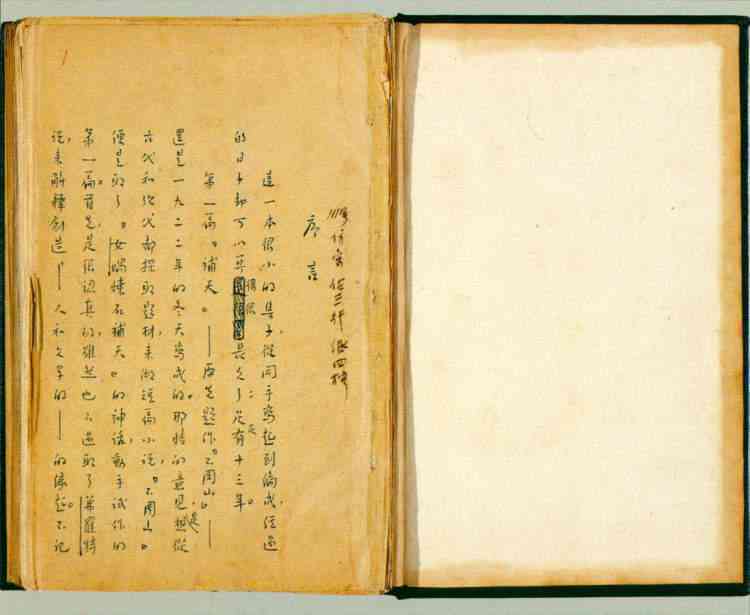 仿宋 佔三行 低四格
序言
這一本很小的集子,從開手寫起到編成,經過
的日子却可以算得很長久了:足足有十三年。
第一篇『補天』——原先題作『不周山』——
還是一九二二年的冬天寫成的。那時的意見,是想從
古代和現代都採取題材,來做短篇小說,『不周山』
便是取了『女媧煉石補天』的神話,動手試作的
第一篇。首先,是很認真的,雖然也不過取了茀羅特
說,來解釋創造——人和文學的——的緣起。不記